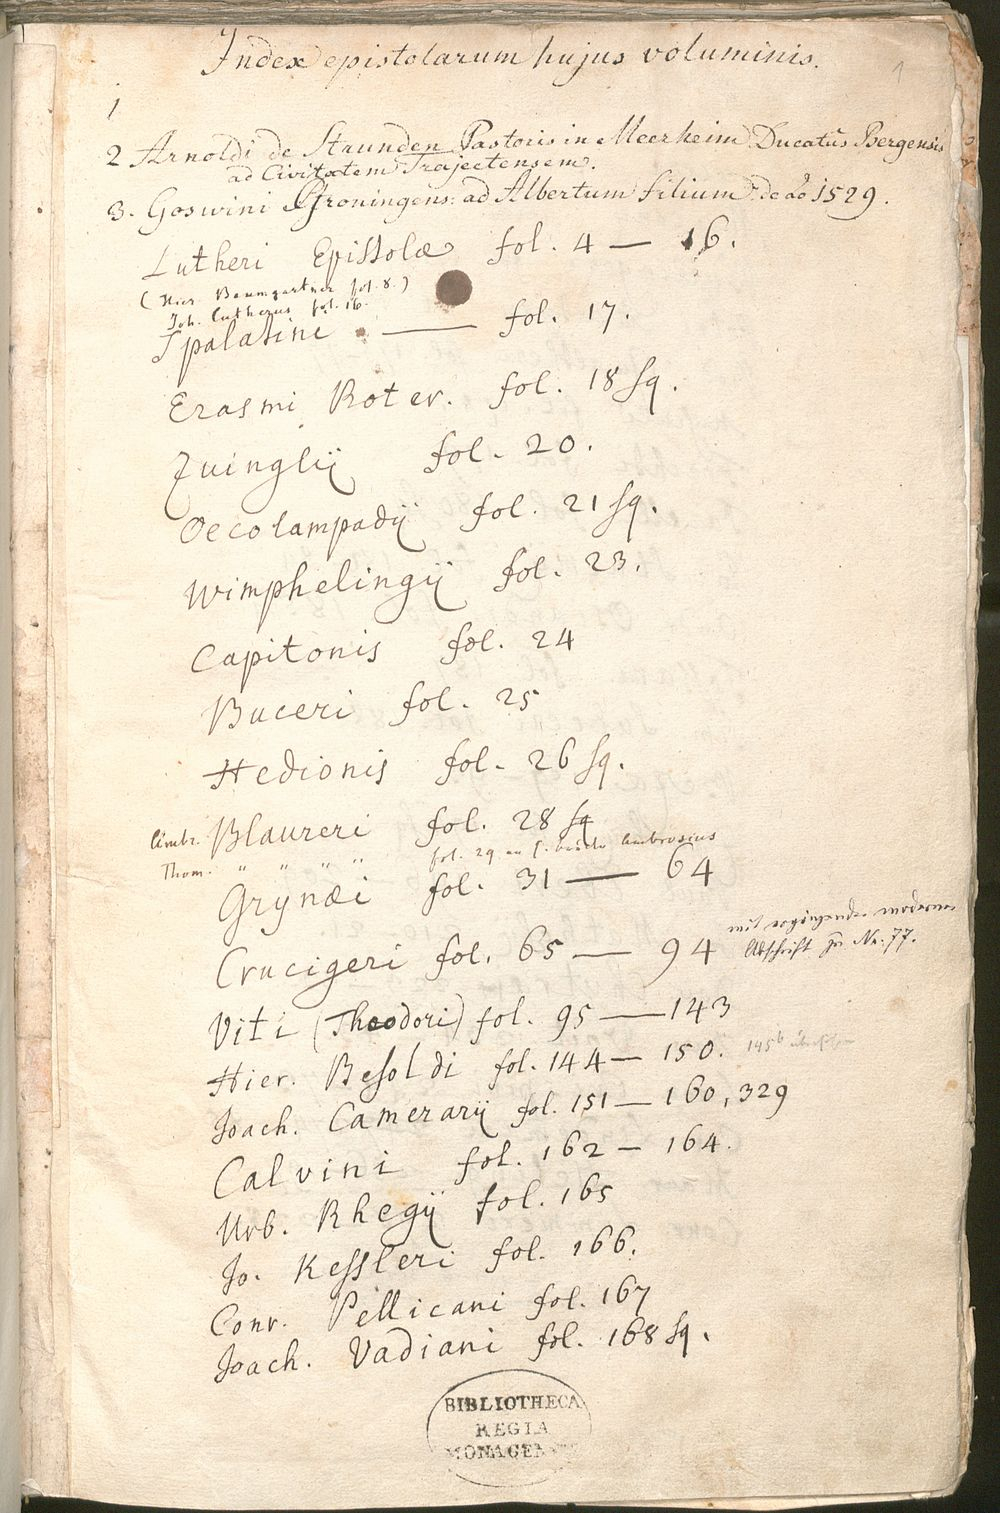 Index epistolarum hujus voluminis.
1
1
2 Arnoldi de Strunden Pastoris in Meerheim Ducatûs Bergensis
ad Civitatem Trajectensem.
3. Goswini Groningens: ad Albertum filium de aõ 1529.
Lutheri Epistolæ fol. 4 — 16.
(Hier. Baumgartner fol. 8.)
Joh. Lutherus fol. 16.
Spalatini — fol. 17.
Erasmi Roter. fol. 18 sq.
Zuinglij fol. 20.
Oecolampadij fol. 21 sq.
Wimphelingij fol. 23.
Capitonis fol. 24
Buceri fol. 25
Hedionis fol. 26 sq.
Ambr. Blaureri fol. 28 sq
Thom. " " " " fol. 29 an s. Ambrosius
Grÿnæi fol. 31 — 64
Crucigeri fol. 65 — 94 mit ergänzender moderner
Abschrift zu Nr. 77.
Viti (Theodori) fol. 95 — 143
Hier. Besoldi fol. 144 — 150. 145b
Joach. Camerarij fol. 151 — 160, 329
Calvini fol. 162 — 164.
Urb. Rhegij fol. 165
Jo. Kessleri fol. 166.
Conr. Pellicani fol. 167
Joach. Vadiani fol. 168 sq.
BIBLIOTHECA
REGIA
MONACENSIS